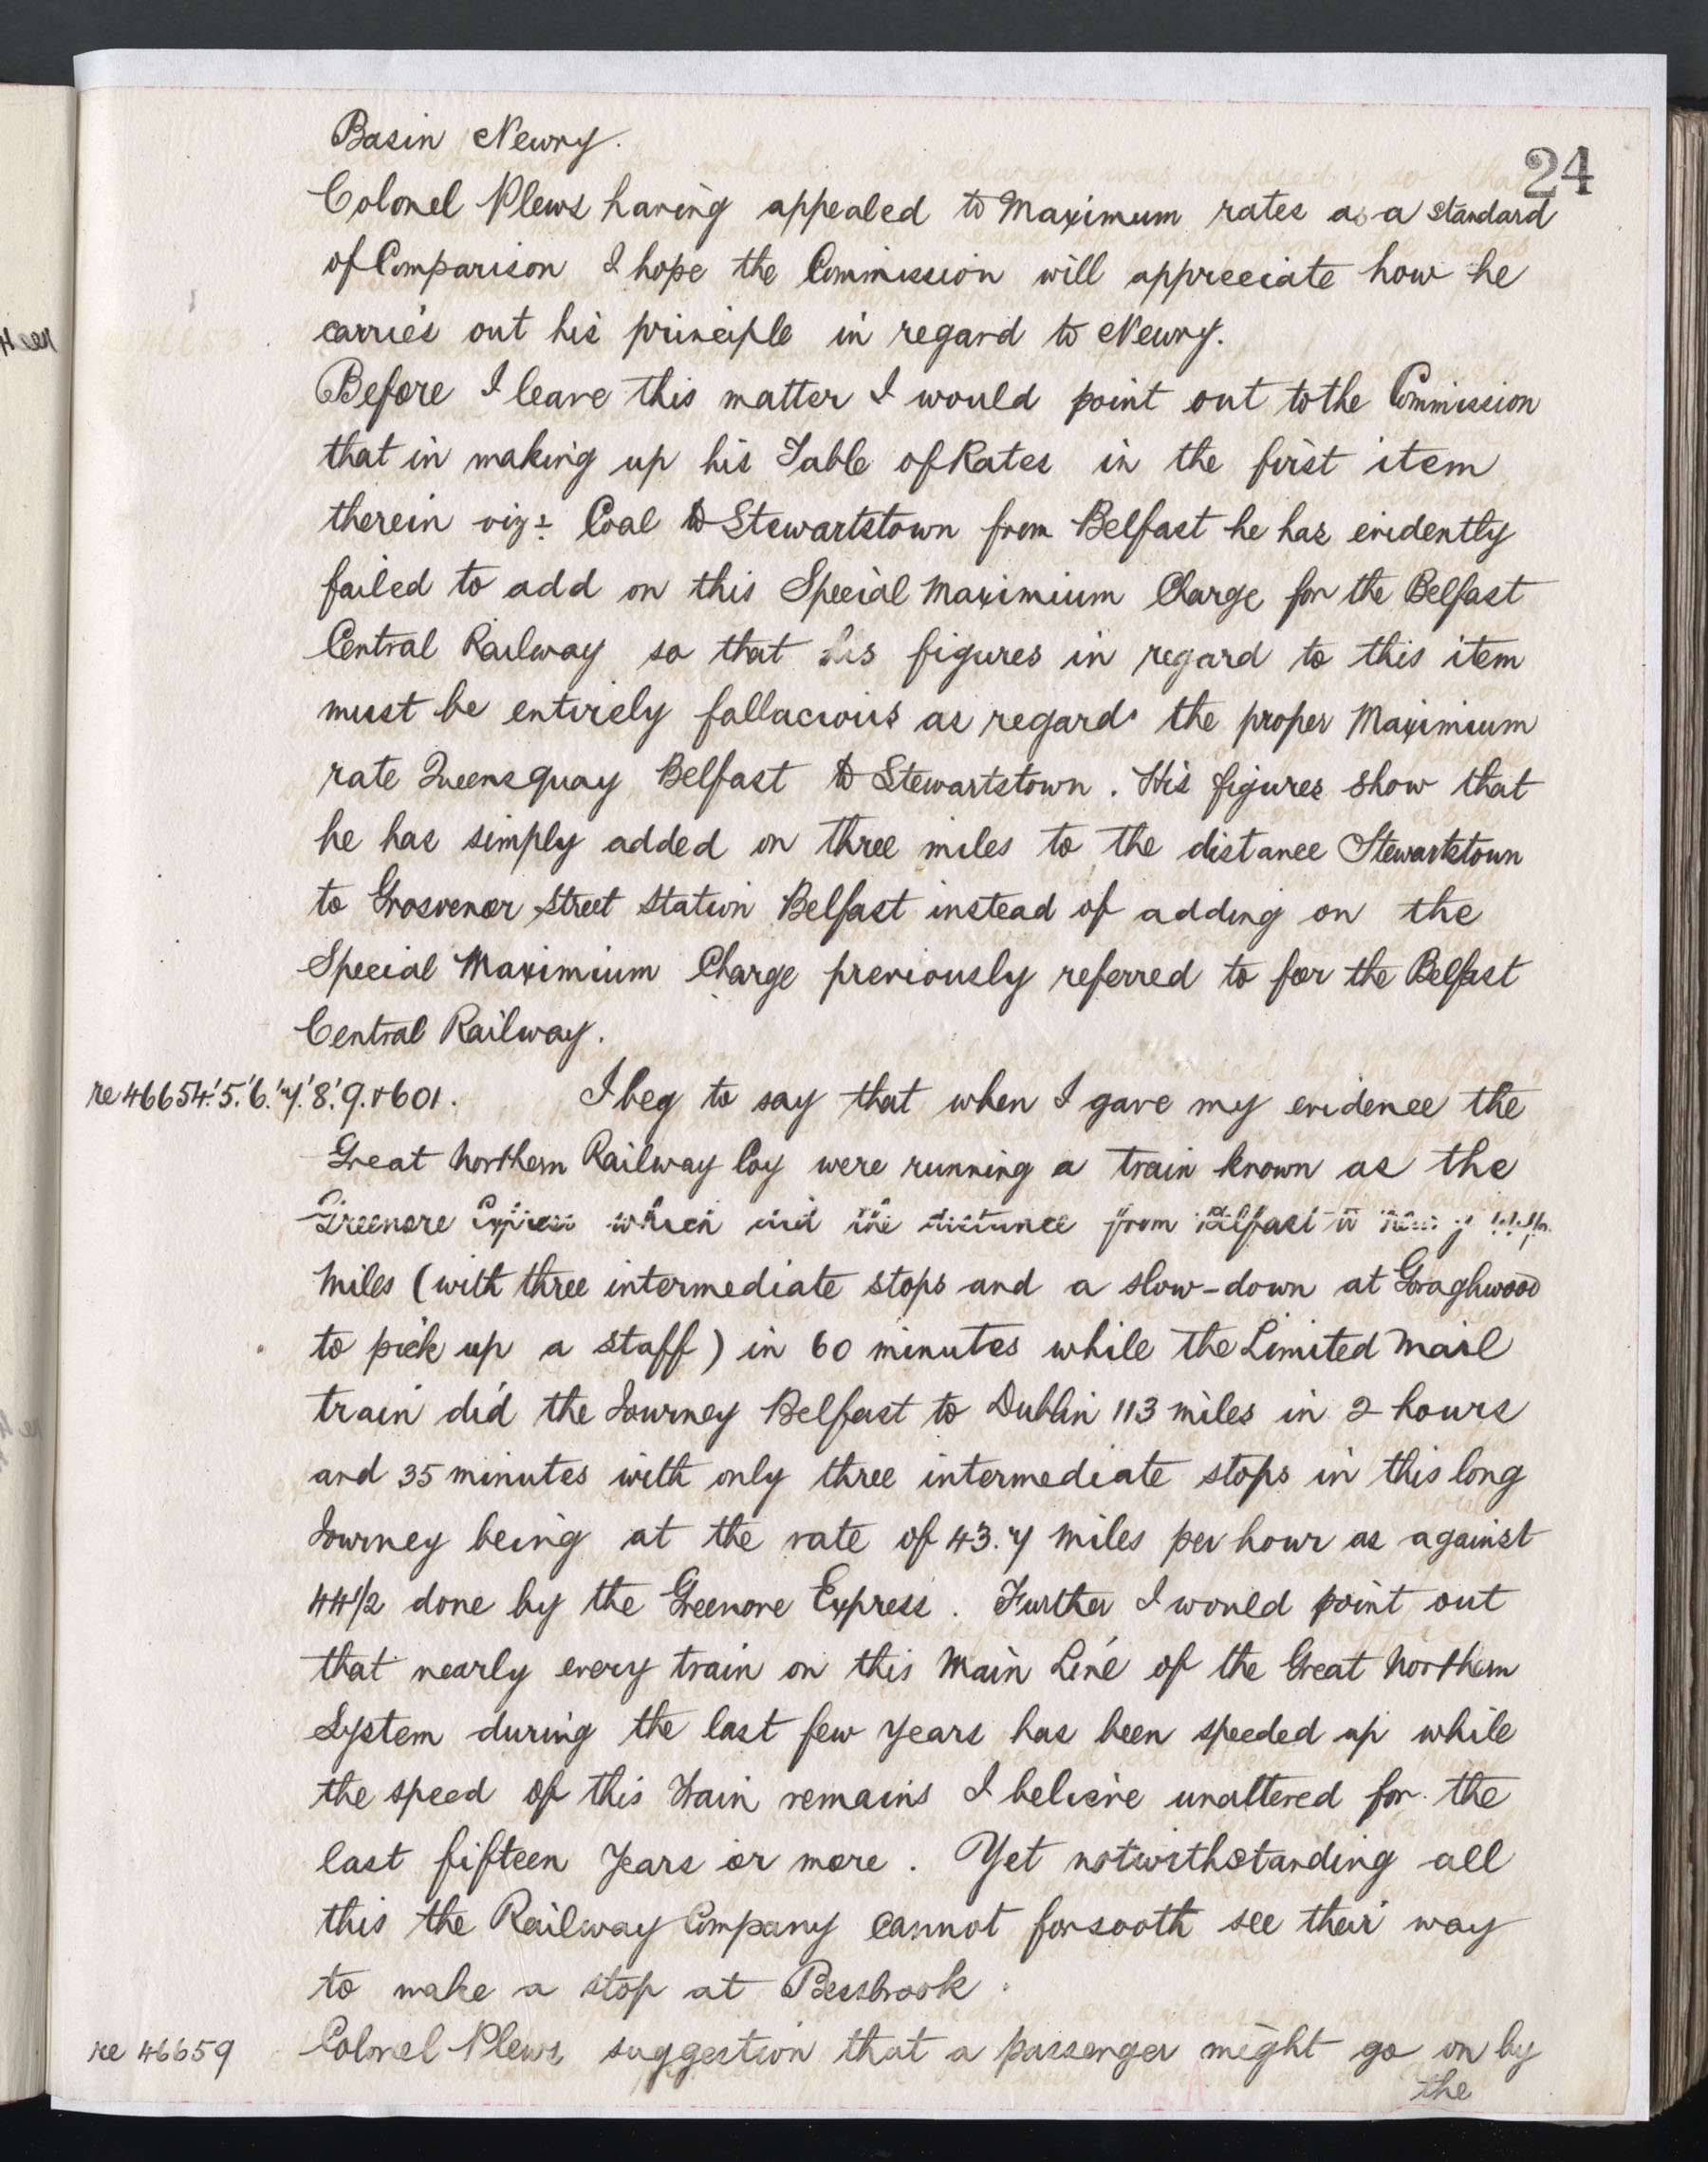 24
Basin Newry.
Colonel Plews having appealed to Maximum rates as a standard
of Comparison I hope the Commission will appreciate how he
carries out his principle in regard to Newry.
Before I leave this matter I would point out to the Commission
that in making up his Table of Rates in the first item
therein viz: Coal to Stewartstown from Belfast he has evidently
failed to add on this Special Maximium Charge for the Belfast
Central Railway so that his figures in regard to this item
must be entirely fallacious as regards the proper Maximium
rate Queens quay Belfast to Stewartstown. His figures show that
he has simply added on three miles to the distance Stewartstown
to Grosvenor Street Station Belfast instead of adding on the
Special Maximium Charge previously referred to for the Belfast
Central Railway.
re 46654.'5.'6.'7.'8.'9.&601. I beg to say that when I gave my evidence the
Great Northern Railway Coy were running a train known as the
Greenore Express which did the distance from Belfast to
Miles (with three intermediate stops and a slow-down at Goraghwood
to pick up a staff) in 60 minutes while the Limited Mail
train did the Journey Belfast to Dublin 113 miles in 2 hours
and 35 minutes with only three intermediate stops in this long
Journey being at the rate of 43.7 Miles per hour as against
44 1/2 done by the Greenore Express. Further I would point out
that nearly every train on this Main Line of the Great Northern
System during the last few years has been speeded up while
the speed of this Train remains I believe unaltered for the
last fifteen Years or more. Yet notwithstanding all
this the Railway Company cannot forsooth see their way
to make a stop at Bessbrook.
re 46659 Colonel Plews suggestion that a passenger might go on by
the